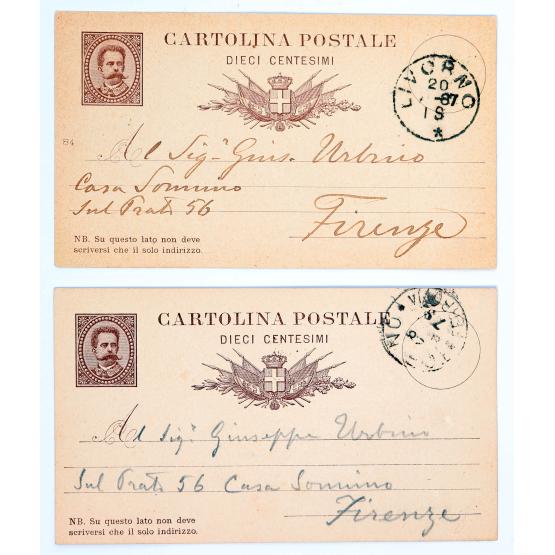 CARTOLINA POSTALE
DIECI CENTESIMI
LIVORNO
20
-87
1S
*
84
Al Sigr Gius. Urbino
Casa Sonnino
Sul Prato 56
Firenze
NB. Su questo lato non deve
scriversi che il solo indirizzo.
CARTOLINA POSTALE
DIECI CENTESIMI
Al Sigr Giuseppe Urbino
Sul Prato 56 Casa Sonnino
Firenze
NB. Su questo lato non deve
scriversi che il solo indirizzo.